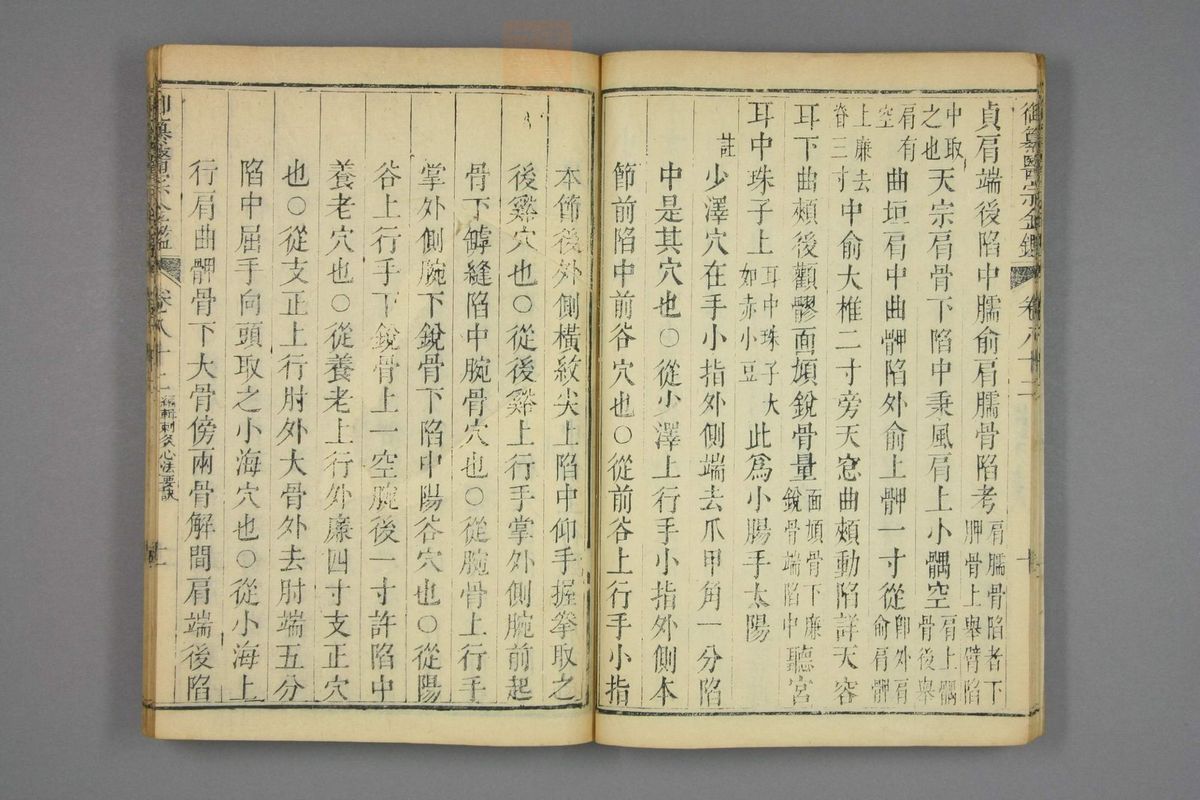 御纂醫宗金鑑 卷八十二
貞肩端後陷中臑俞肩臑骨陷考肩臑骨陷者下胛骨上舉臂陷
中取之也天宗肩骨下陷中秉風肩上小髃空肩上髃骨後舉
肩有空曲垣肩中曲胛陷外俞上胛一寸從卽外肩俞肩胛
上廉去脊三寸中俞大椎二寸旁天窗曲頰動陷詳天容
耳下曲頰後顴髎面頄銳骨量面頄骨下廉銳骨端陷中聽宮
耳中珠子上耳中珠子大如赤小豆此爲小腸手太陽
註少澤穴在手小指外側端去爪甲角一分陷
中是其穴也○從少澤上行手小指外側本
節前陷中前谷穴也○從前谷上行手小指
本節後外側橫紋尖上陷中仰手握拳取之
後谿穴也○從後谿上行手掌外側腕前起
骨下罅縫陷中腕骨穴也○從腕骨上行手
掌外側腕下銳骨下陷中陽谷穴也○從陽
谷上行手下銳骨上一空腕後一寸許陷中
養老穴也○從養老上行外廉四寸支正穴
也○從支正上行肘外大骨外去肘端五分
陷中屈手向頭取之小海穴也○從小海上
行肩曲胛骨下大骨傍兩骨解間肩端後陷
御纂醫宗金鑑 卷八十二 編輯刺灸心法要訣